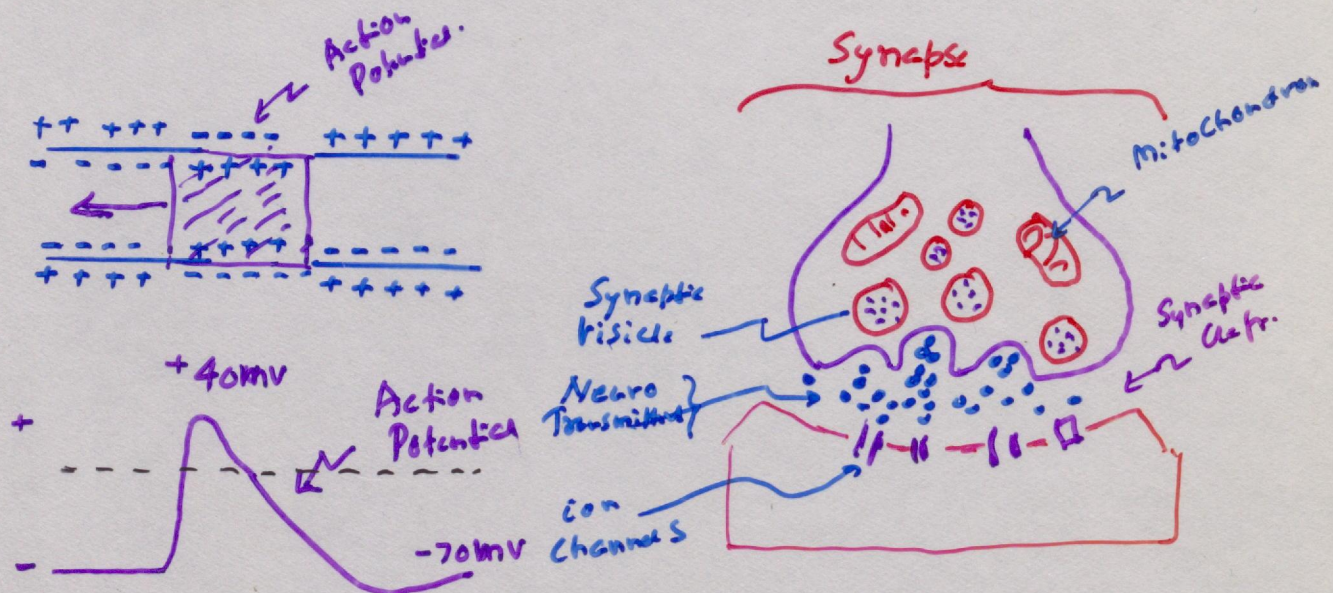 Action
Potential.
++ +++ ---- +++++
- ---- ++++ -----
----- ++++ -----
++++ ----- +++++
+40mv
+
Action
Potential
-70mv
-
Synapse
Mitochondron
Synaptic
Visicle
Synaptic
Neuro
Transmitter
ion
Channels